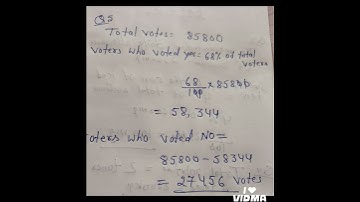 Q5
Total voters: 85800
voters who voted yes = 68% of total
voters
68/100 × 85800
= 58,344
oters who voted NO =
85800-58344
= 27456 votes
I ♥
VIDMA